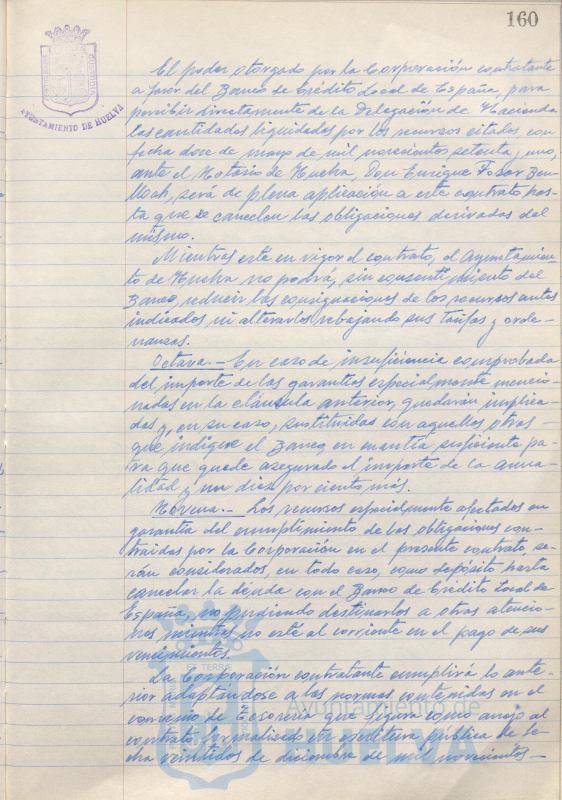 160
AYUNTAMIENTO DE HUELVA
El poder otorgado por la Corporación contratante
a favor del Banco de Crédito Local de España, para
percibir directamente de la Delegación de Hacienda
las cantidades liquidadas por los recursos citados, con
fecha doce de mayo de mil novecientos setenta y uno,
ante el Notario de Huelva, Don Enrique
será de plena aplicación a este contrato has-
ta que se cancelen las obligaciones derivadas del
mismo.
Mientras esté en vigor el contrato, el Ayuntamien-
to de Huelva no podrá, sin consentimiento del
Banco, reducir las consignaciones de los recursos antes
indicados ni alterarlos rebajando sus tarifas y orde-
nanzas.
Octava.- En caso de insuficiencia comprobada
del importe de las garantías especialmente mencio-
nadas en la cláusula anterior, quedarán amplia-
das y, en su caso, sustituidas con aquellos otros
que indique el Banco, en cuantía suficiente pa-
ra que quede asegurado el importe de la anua-
lidad y un diez por ciento más.
Novena.- Los recursos especialmente afectados en
garantía del cumplimiento de las obligaciones con-
traidas por la Corporación en el presente contrato, se-
rán considerados, en todo caso, como depósito, hasta
cancelar la deuda con el Banco de Crédito Local de
España, no pudiendo destinarlos a otras atencio-
nes mientras no esté al corriente en el pago de sus
vencimientos.
La Corporación contratante cumplirá lo ante-
rior adaptándose a las normas contenidas en el
convenio de Tesorería que figura como anejo al
contrato formalizado en escritura pública de fe-
cha veintidos de diciembre de mil novecientos-
Ayuntamiento de
HUELVA